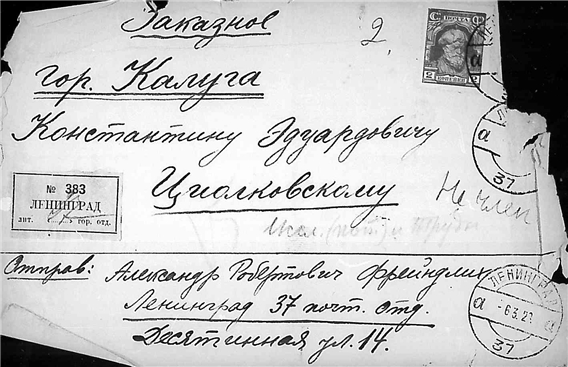 Заказное
2
гор. Калуга
Константину Эдуардовичу
Циолковскому
№ 383
ЛЕНИНГРАД
лит. гор. отд.
Не член
Отправ: Александр Робертович Фрейндлих
Ленинград 37 почт. отд.
Десятинная ул. 14.
ПОЧТА
2 КОПЕЙКИ 2
а
а
37
ЛЕНИНГРАД
а -6.3.2 а
37